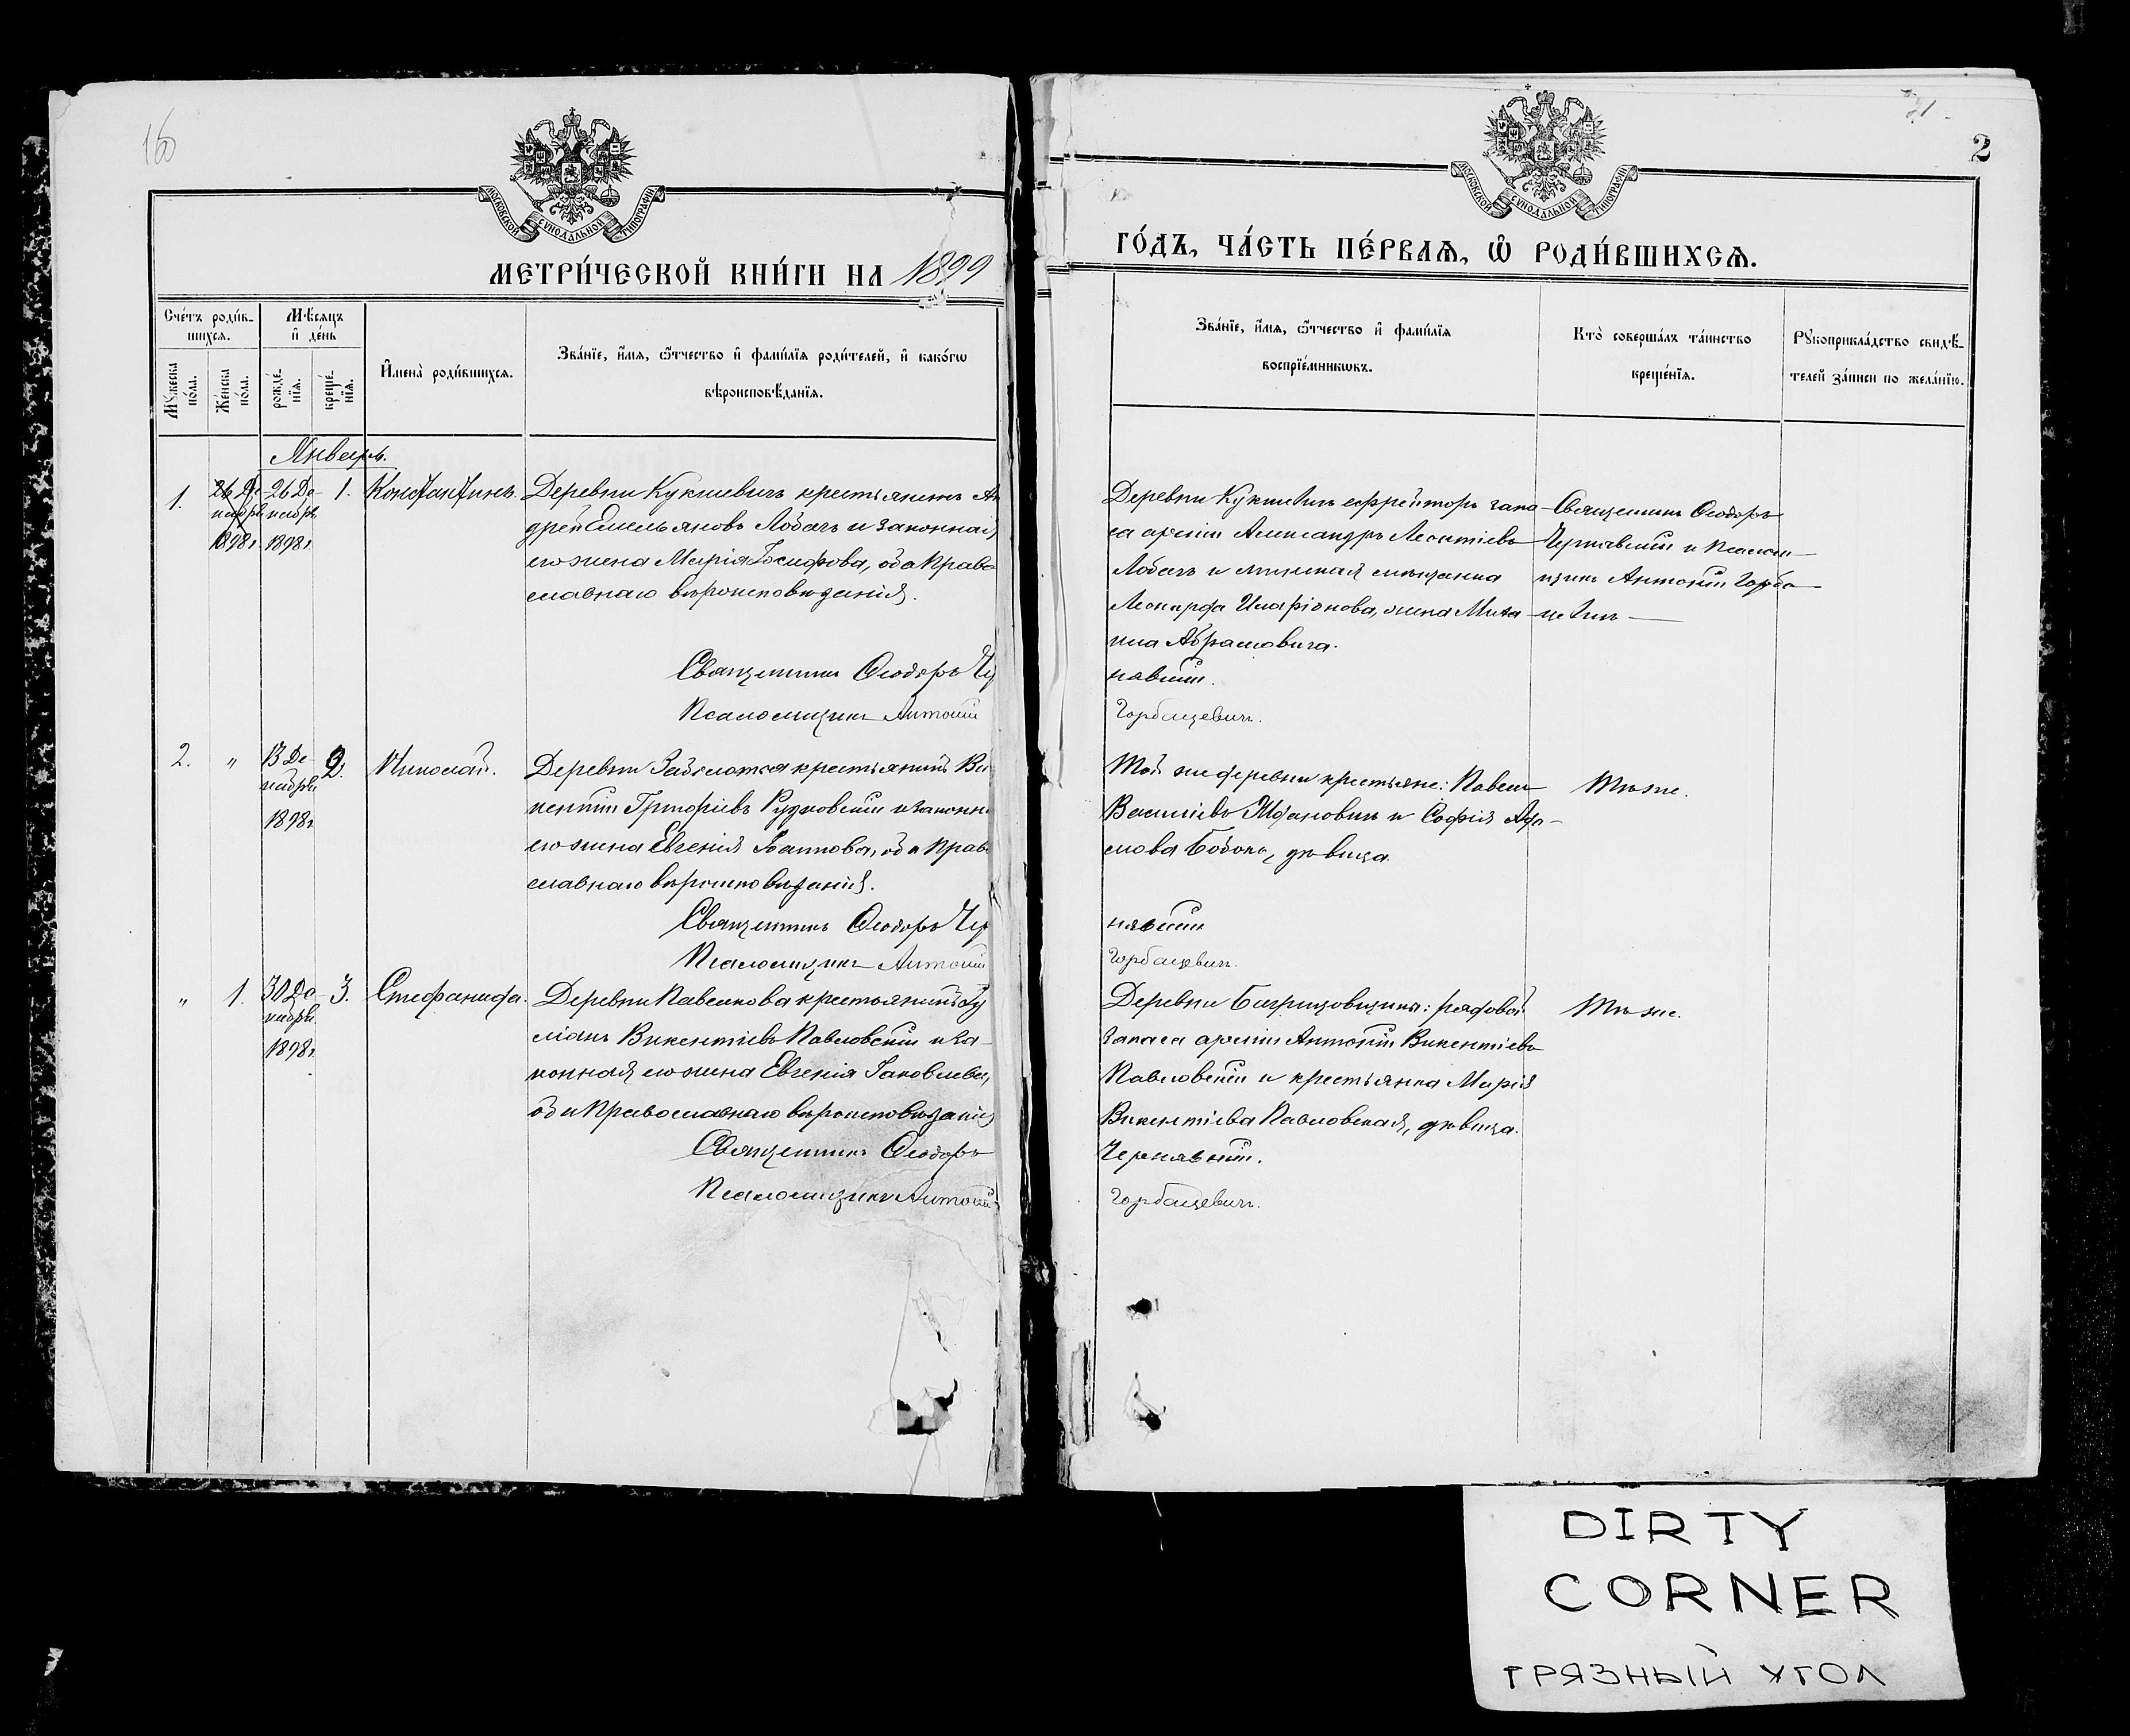 16
МОСКОВСКОЙ СѴНОДАЛЬНОЙ ТИПОГРАФІИ
МЕТРИ́ЧЕСКОЙ КНИ́ГИ НА 1899
Сче́тъ роди́в-
шихся.
Мѣ́сяцъ
и҆ де́нь
Мꙋ́жеска
по́ла.
Же́нска
по́ла.
рожде́-
нїя.
креще́-
нїя.
И҆мена̀ роди́вшихся.
Зва́нїе, и҆́мя, ѻ҆́тчество и҆ фами́лїя роди́телей, и҆ како́гѡ
вѣроисповѣ́данїя.
Январь.
1.
26 Де-
кабря
1898 г.
26 Де-
кабря
1898 г.
1.
Константинъ.
Деревни Кукшевичъ крестьянинъ Ан
дрей Емельяновъ Лобачъ и законная
его жена Марія Іосифова, оба Право
славнаго вѣроисповѣданія.
Священникъ Ѳеодоръ Чер
Псаломщикъ Антоній
2.
"
13 Де-
кабря
1898 г.
2.
Николай.
Деревни Заболотья крестьянинъ Ви
кентій Григоріевъ Рудковскій и законн
его жена Евгенія Іоаннова, оба Прав
славнаго вѣроисповѣданія.
Священникъ Ѳеодоръ Чер
Псаломщикъ Антоній
"
1.
30 Де-
кабря
1898 г.
3.
Стефанида.
Деревни Павелкова крестьянинъ
Викентіевъ Павловскій и за-
конная его жена Евгенія Іаковлева,
оба Православнаго вѣроисповѣданія
Священникъ Ѳеодоръ
Псаломщикъ Антоній
21
2
МОСКОВСКОЙ СѴНОДАЛЬНОЙ ТИПОГРАФІИ
ГО́ДЪ, ЧА́СТЬ ПЕ́РВАЯ, Ѡ҆ РОДИ́ВШИХСЯ.
Зва́нїе, и҆́мя, ѻ҆́тчество и҆ фами́лїя
воспрїе́мникѡвъ.
Кто̀ соверша́лъ та́инство
креще́нїя.
Рꙋкоприкла́дство свидѣ́-
телей за́писи по жела́нїю.
Деревни Кукшевичъ ефрейторъ запа-
са арміи Александръ Леонтіевъ
Лобачъ и минская мѣщанка
Леокарда Иларіонова, жена Миха-
ила Абрамовича.
Священникъ Ѳеодоръ
Чернявскій и псалом-
щикъ Антоній Горба-
цевичъ
навскій.
Горбацевичъ.
Той же деревни крестьяне: Павелъ
Василіевъ Ждановичъ и Софія Ада-
мова Бобокъ, дѣвица.
Тѣ же.
нявскій
Горбацевичъ.
Деревни Багрицовщина: рядовой
запаса арміи Антоній Викентіевъ
Павловскій и крестьянка Марія
Викентіева Павловская, дѣвица.
Тѣ же.
Чернявскій.
Горбацевичъ.
DIRTY
CORNER
ГРЯЗНЫЙ УГОЛ